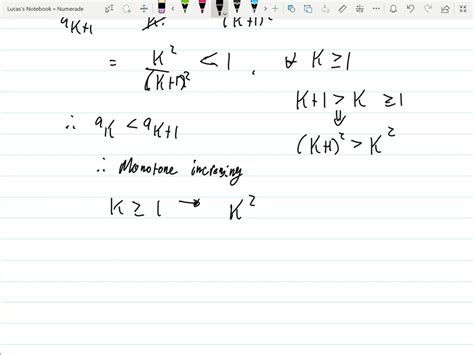 Lucas's Notebook » Numerade
a_{K+1} K. (K+1)^2
= K^2/(K+1)^2 < 1, ∀ K ≥ 1
K+1 > K ≥ 1
⇓
∴ a_K < a_{K+1} (K+1)^2 > K^2
∴ Monotone increasing
K ≥ 1 → K^2